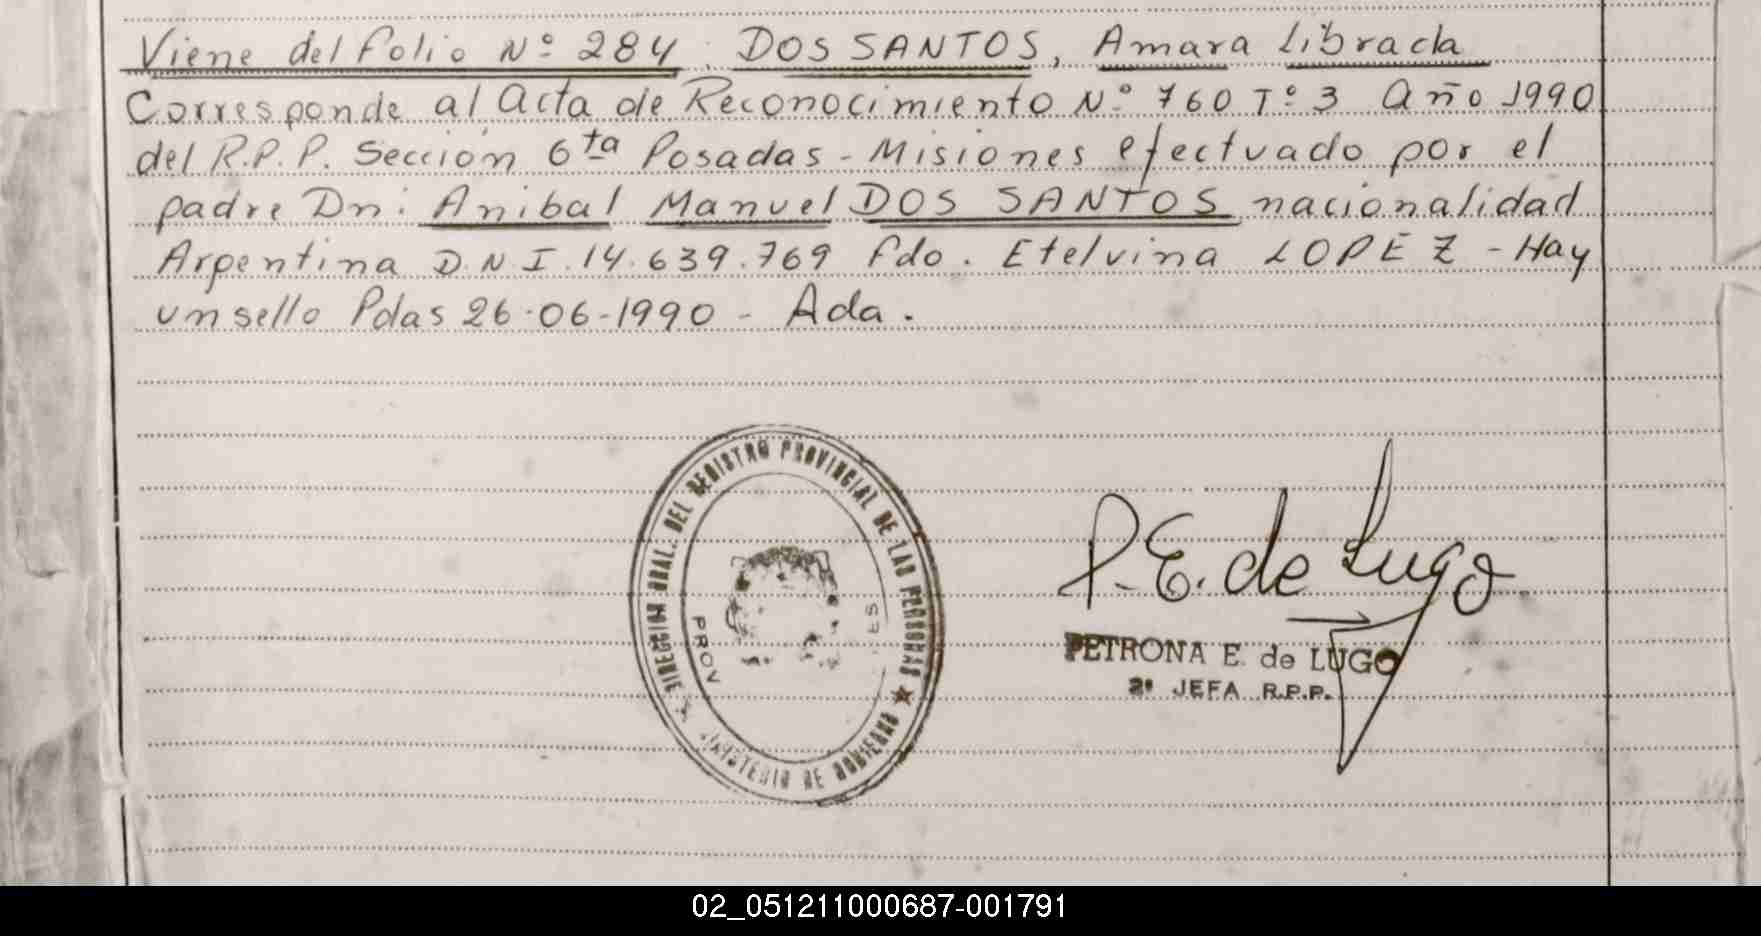 Viene del folio Nº 284. DOS SANTOS, Amara Librada
Corresponde al Acta de Reconocimiento Nº 760 Tº 3 Año 1990
del R.P.P. Sección 6ta Posadas - Misiones efectuado por el
padre Dn: Anibal Manuel DOS SANTOS nacionalidad
Argentina D.N.I. 14.639.769 fdo. Etelvina LOPEZ - Hay
un sello Pdas 26-06-1990 - Ada.
DIRECCION GRAL. DEL REGISTRO PROVINCIAL DE LAS PERSONAS
PROV
ES
MINISTERIO DE GOBIERNO
P.E. de Lugo
PETRONA E. de LUGO
2ª JEFA R.P.P.
02_051211000687-001791